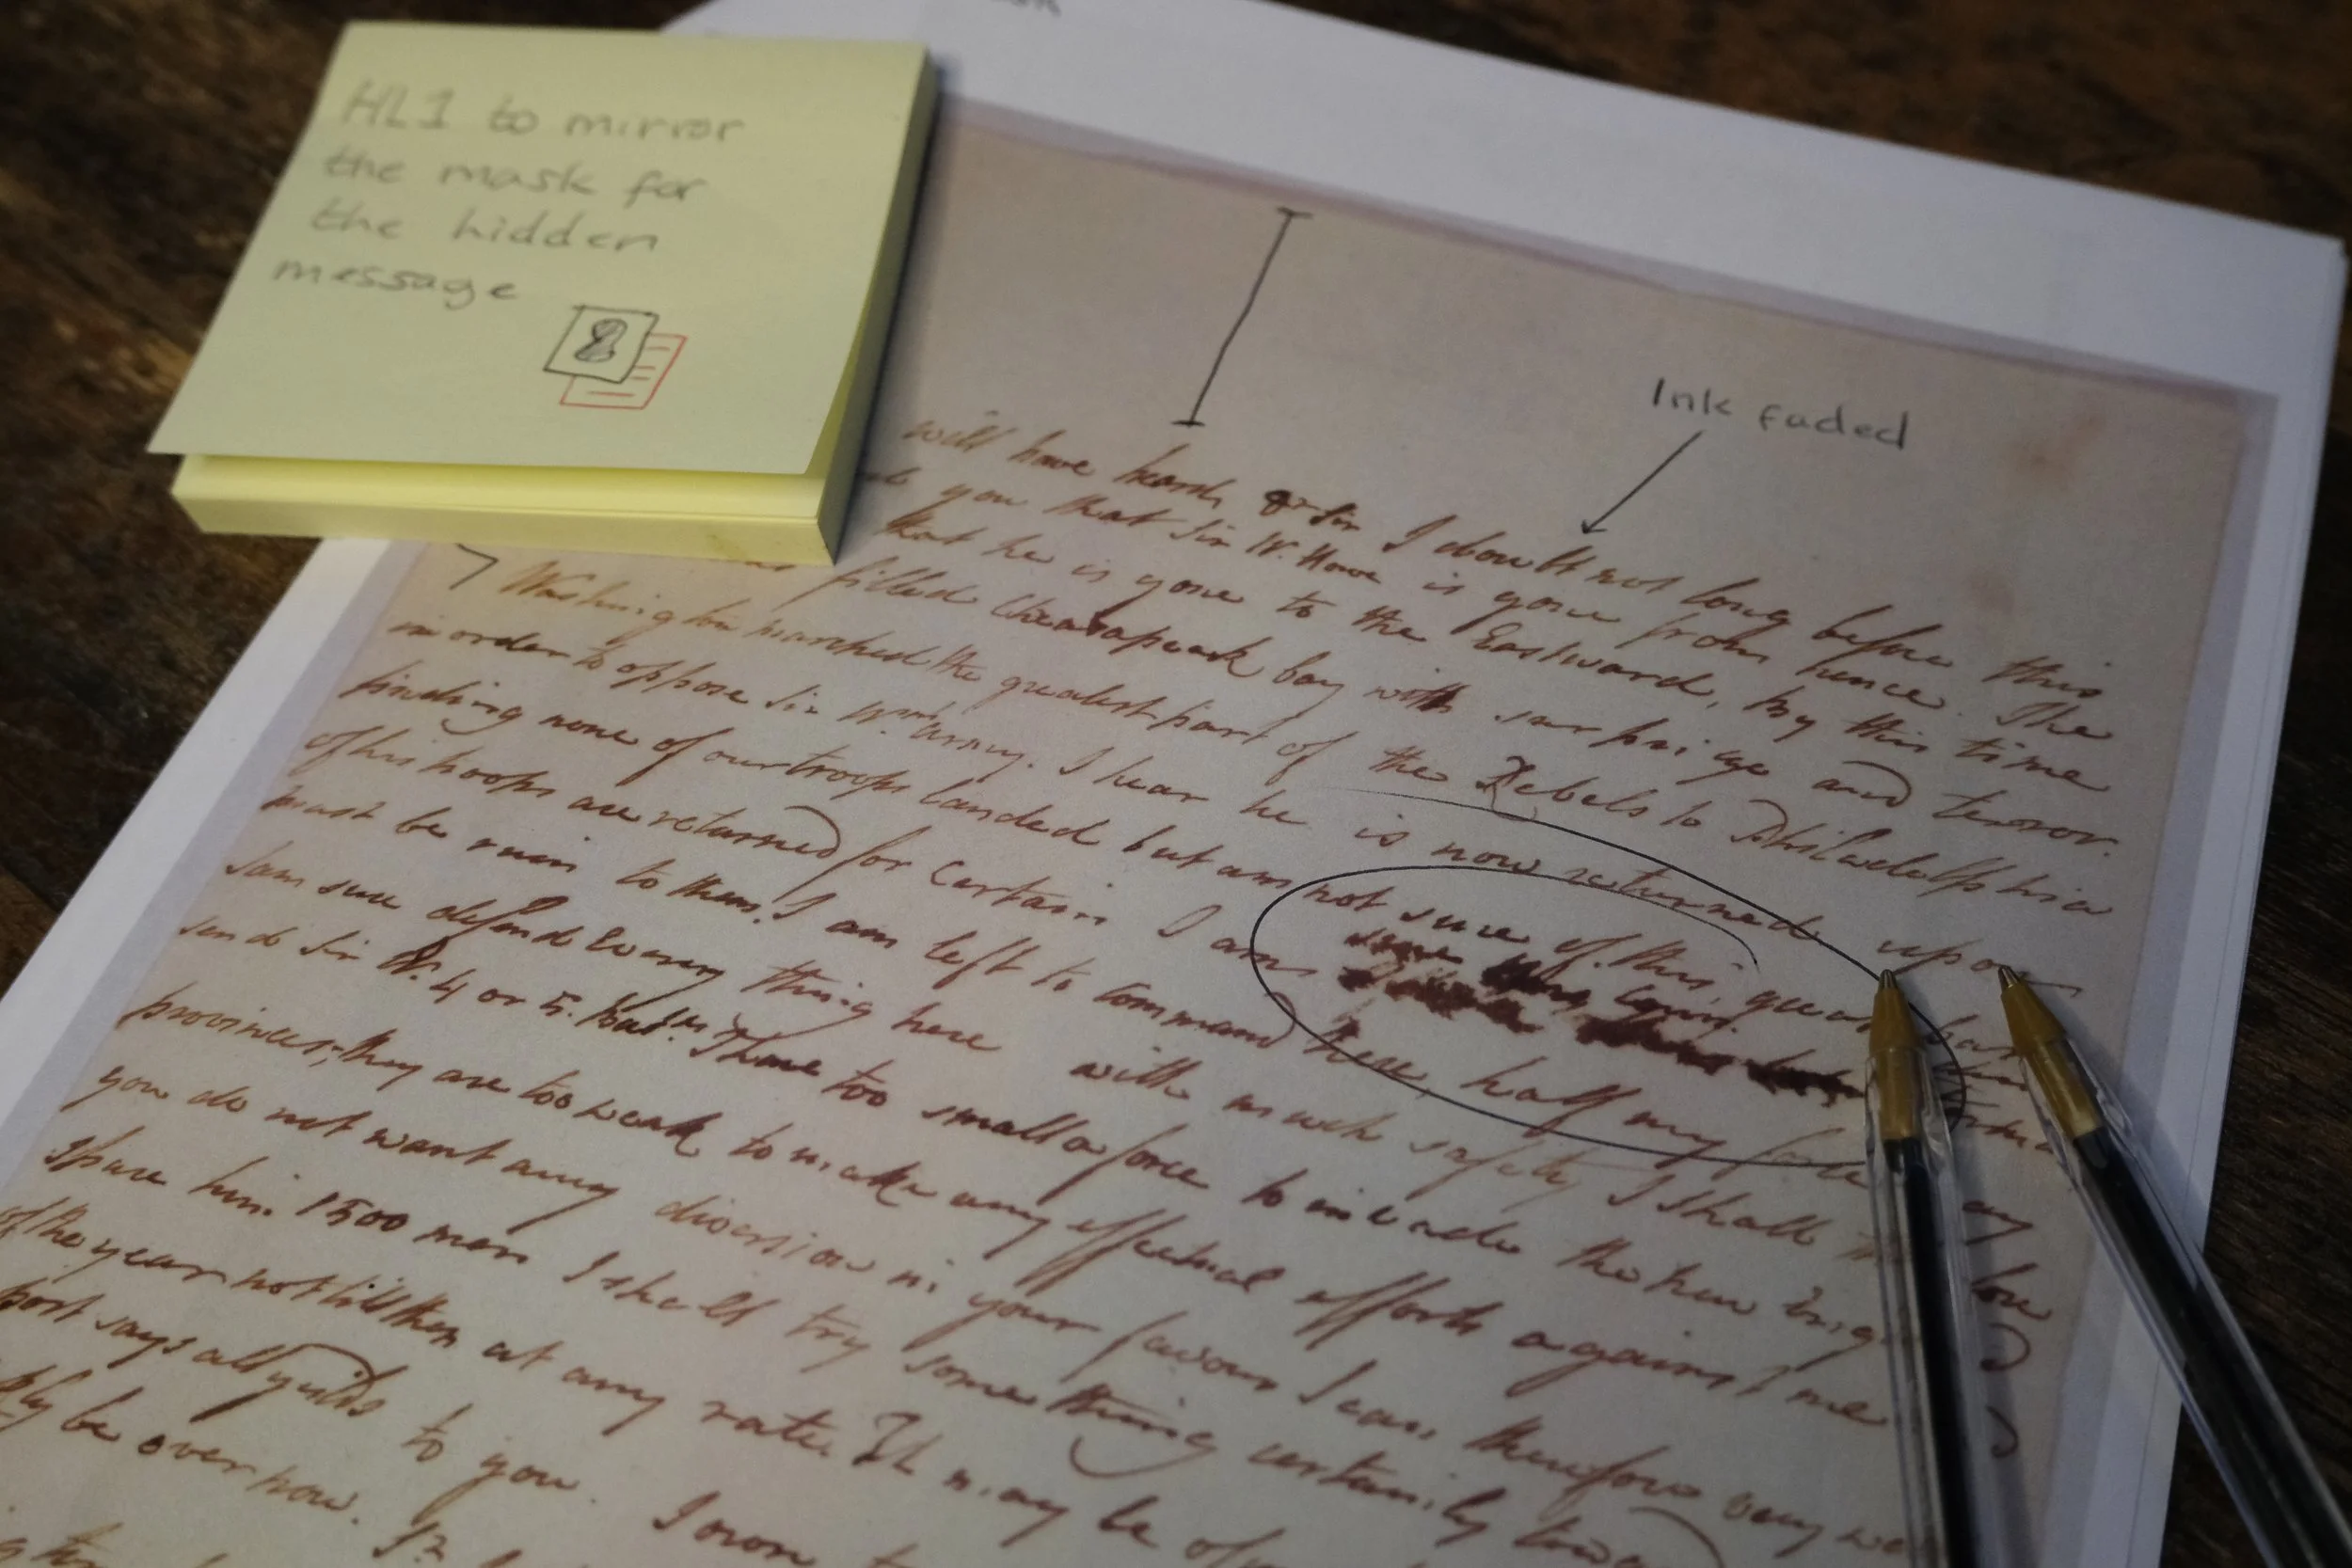 HL1 to mirror
the mask for
the hidden
message
Ink faded
will have heard, Dr Sir I doubt not long before this
you that Sir W. Howe is gone from hence. The
that he is gone to the Eastward, by this time
filled Cheasapeak bay with surprize and terror.
Washington marched the greatest part of the Rebels to Philadelphia
in order to oppose Sir Wm's army. I hear he is now returned upon
finding none of our troops landed but am not sure of this, great
of his troops are returned for certain I am
must be ruin to them. I am left to command here, half my force
I am sure defend Every thing here with much safety I shall
send Sir W. 4 or 5. Batns I have too small a force to invade the New
provinces, they are too weak to make any effectual efforts against me
you do not want any diversion in your favour I can therefore very well
spare him. 1500 men I shall try something certainly
of the year not till then at any rate. It may be of
port says all yields to you. I own
be over now. Sr